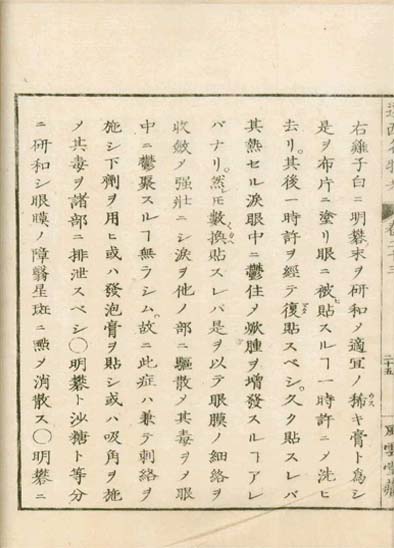 右雞子白ニ明礬末ヲ研和メ適宜ノ稀キ膏ト為シ
是ヲ布片ニ塗リ眼ニ被貼スルヿ一時許ニメ洗ヒ
去リ。其後一時許ヲ經テ復貼スベシ。久ク貼スレバ
其熱セル淚眼中ニ鬱住メ焮腫ヲ増發スルヿアレ
バナリ。然レ𪜈數換貼スレバ是ヲ以テ眼膜ノ細絡ヲ
收斂メ强壯ニシ淚ヲ他ノ部ニ驅散メ其毒ヲメ眼
中ニ鬱聚スルヿ無ラシム。故ニ此症ハ兼テ刺絡ヲ
施シ下劑ヲ用ヒ或ハ發泡膏ヲ貼シ或ハ吸角ヲ施
メ其毒ヲ諸部ニ排泄スベシ〇明礬ト沙糖ト等分
ニ研和シ眼膜ノ障翳星斑ニ㸃メ消散ス〇明礬ニ